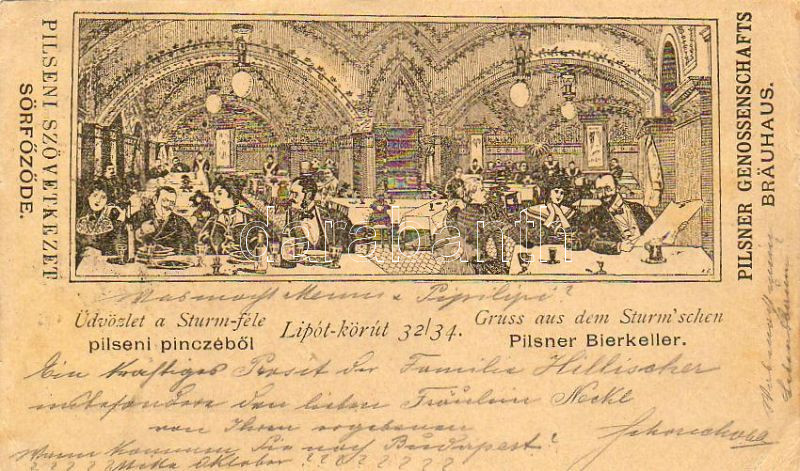 PILSENI SZÖVETKEZET
SÖRFŐZŐDE.
PILSNER GENOSSENSCHAFTS
BRÄUHAUS.
darabanth
Was macht Menus u Pipilipi?
Üdvözlet a Sturm-féle
pilseni pinczéből
Lipót-körút 32/34.
Gruss aus dem Sturm'schen
Pilsner Bierkeller.
Ein kräftiges Prosit der Familie Hillischer
insbesondere den lieben Fräulein Neckl
von Ihrem ergebenen
Wann kommen Sie nach Budapest?
? ? ? ? Mitte Oktober ? ? ? ? ? ? ?